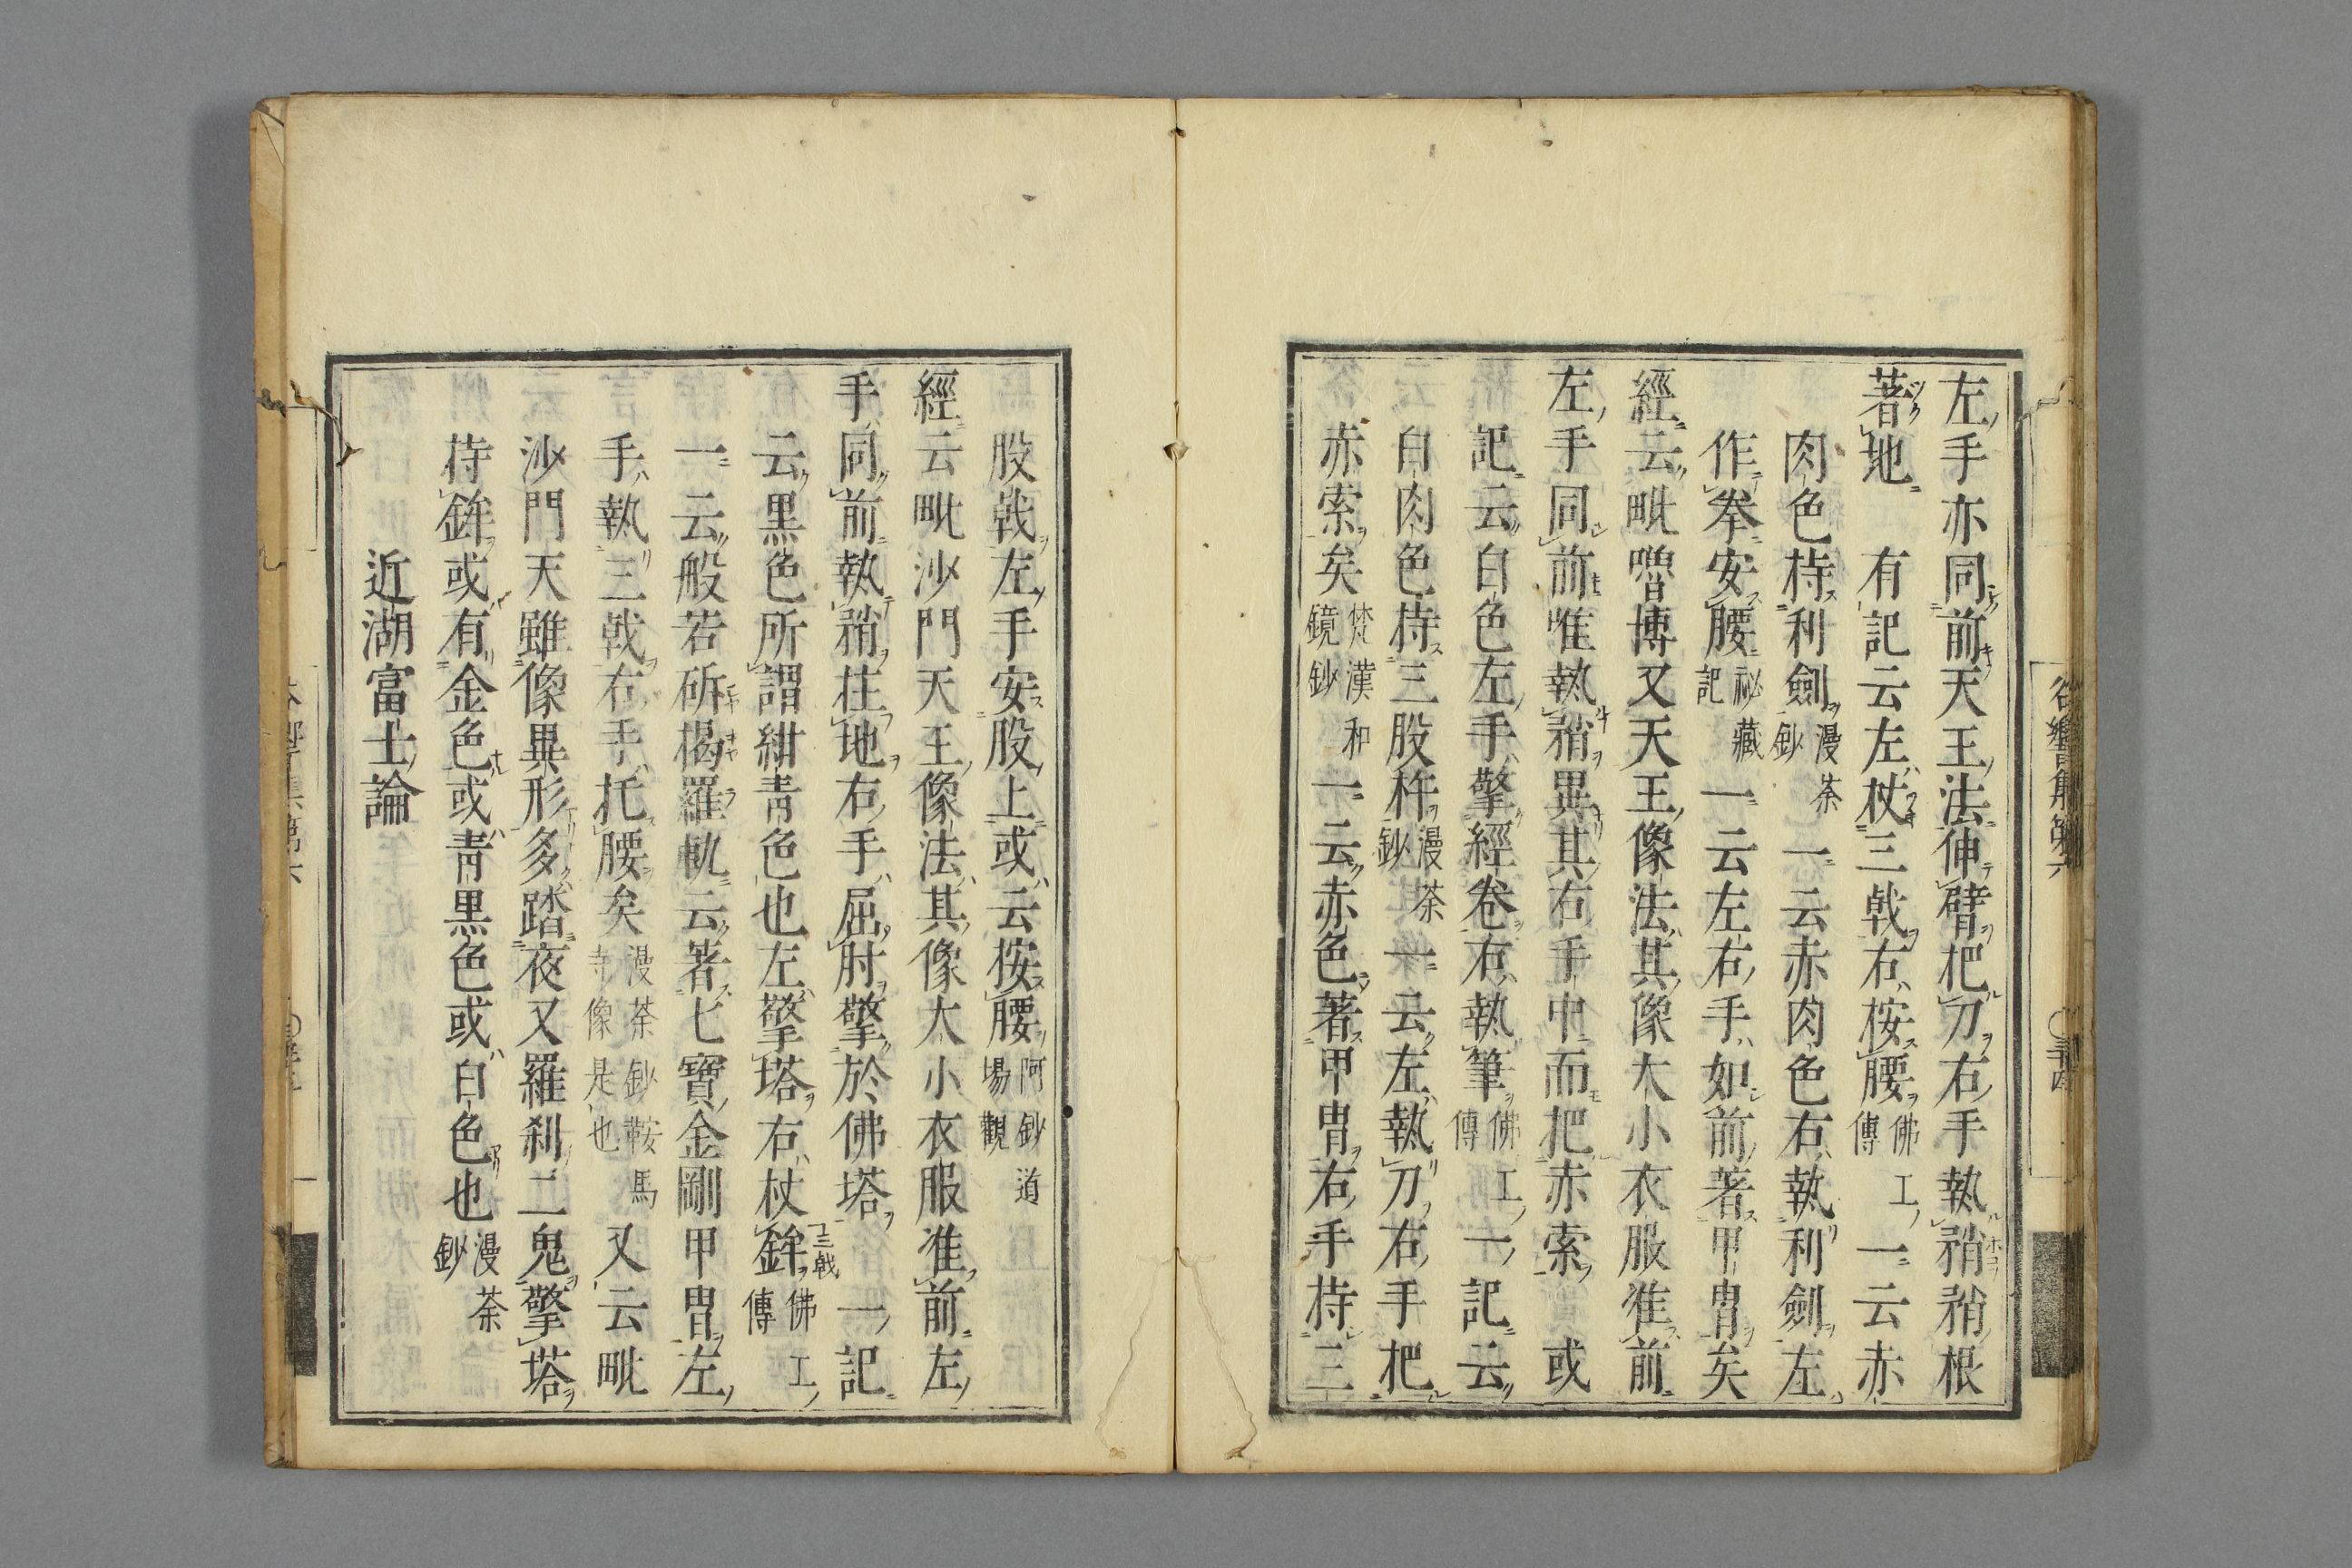 左手亦同前天王法伸臂把刀右手執矟矟根
著地　有記云左杖三戟右按腰佛工傳一云赤
肉色持利劍漫荼鈔一云赤肉色右執利劍左
作拳安腰祕藏記一云左右手如前著甲冑矣
經云毗嚕博叉天王像法其像大小衣服准前
左手同前唯執矟異其右手中而把赤索　或
記云白色左手擎經卷右執筆佛工傳一記云
白肉色持三股杵漫荼鈔一云左執刀右手把
赤索矣梵漢和鏡鈔一云赤色著甲冑右手持三
股戟左手安股上或云按腰阿鈔道場觀
經云毗沙門天王像法其像大小衣服准前左
手同前執矟拄地右手屈肘擎於佛塔　一記
云黑色所謂紺青色也左擎塔右杖鉾三戟佛工傳
一云般若斫楬羅軌云著七寶金剛甲冑左
手執三戟右手托腰矣漫荼鈔鞍馬寺像是也又云毗
沙門天雖像異形多踏夜叉羅刹二鬼擎塔
持鉾或有金色或青黑色或白色也漫荼鈔
近湖富士論